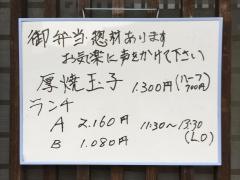 御弁当・惣材あります
お気楽に声をかけて下さい
厚焼玉子 1.300円(ハーフ700円)
ランチ
A 2.160円 11:30~13:30
B 1.080円 (L.O)